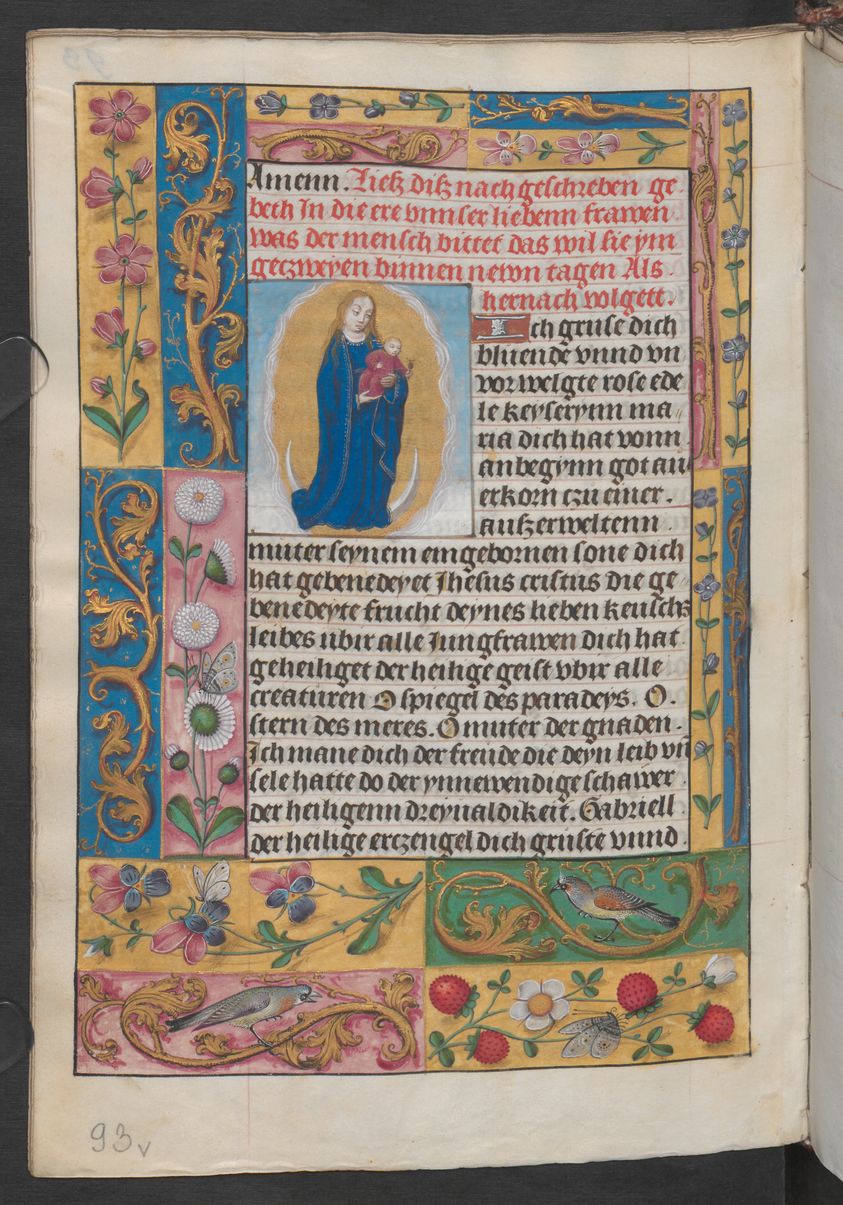 Amenn. Liesz disz nach geschrieben ge
beth In die ere vnnser liebenn frawen
was der mensch bittet das wil sie ym
geczweyen binnen newn tagen Als
hernach volgett.
Ich gruse dich
bluende vnnd vn
vorwelgte rose ede
le keyserynn ma
ria dich hat vonn
anbegynn got au
erkorn czu einer.
auszerweltenn
muter seynem eingebornen sone dich
hat gebenedeyet Jhesus cristus die ge
benedeyte frucht deynes lieben keuschs
leibes vbir alle Jungfrawen dich hat
geheiliget der heilige geist vbir alle
creaturen O spiegel des paradeys. O.
stern des meres. O muter der gnaden.
Ich mane dich der freude die deyn leib vn̄
sele hatte do der ynnewendige schawer
der heiligenn dreyualdikeit. Gabriell
der heilige erczengel dich gruste vnnd
93v